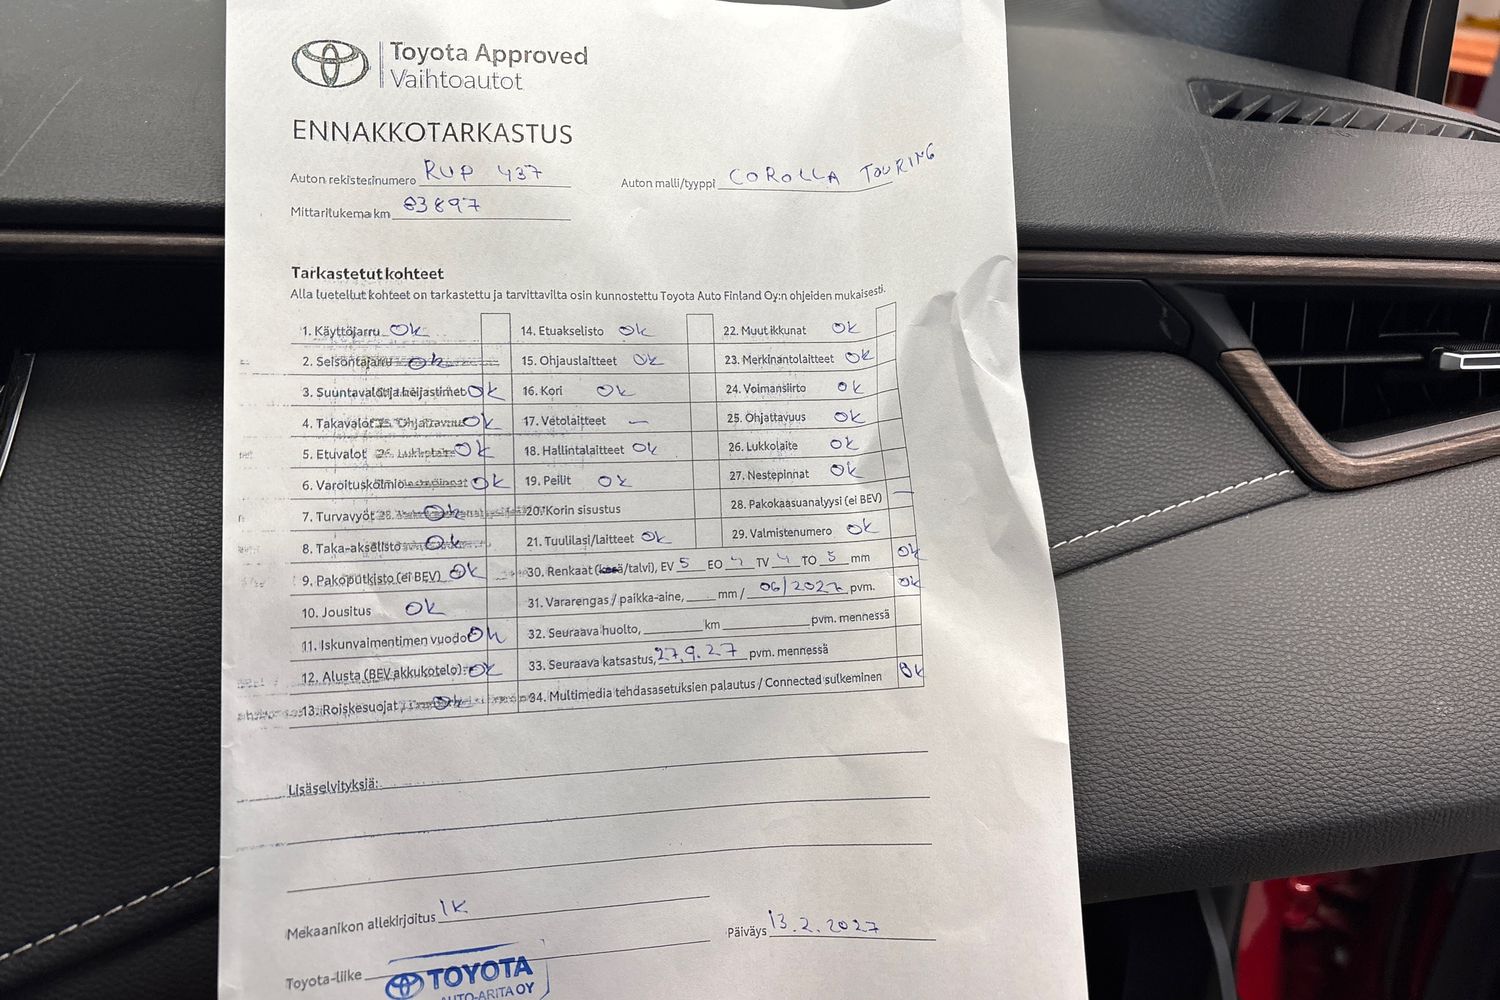 Toyota Approved
Vaihtoautot
ENNAKKOTARKASTUS
Auton rekisterinumero RUP 437
Auton malli/tyyppi COROLLA TOURING
Mittarilukema km 83897
Tarkastetut kohteet
Alla luetellut kohteet on tarkastettu ja tarvittavilta osin kunnostettu Toyota Auto Finland Oy:n ohjeiden mukaisesti.
1. Käyttöjarru Ok
2. Seisontajarru Ok
3. Suuntavalot ja heijastimet Ok
4. Takavalot Ok
5. Etuvalot Ok
6. Varoituskolmio Ok
7. Turvavyöt Ok
8. Taka-akselisto Ok
9. Pakoputkisto (ei BEV) Ok
10. Jousitus Ok
11. Iskunvaimentimen vuodo Ok
12. Alusta (BEV akkukotelo) Ok
13. Roiskesuojat Ok
14. Etuakselisto Ok
15. Ohjauslaitteet Ok
16. Kori Ok
17. Vetolaitteet —
18. Hallintalaitteet Ok
19. Peilit Ok
20. Korin sisustus
21. Tuulilasi/laitteet Ok
22. Muut ikkunat Ok
23. Merkinantolaitteet Ok
24. Voimansiirto Ok
25. Ohjattavuus Ok
26. Lukkolaite Ok
27. Nestepinnat Ok
28. Pakokaasuanalyysi (ei BEV) —
29. Valmistenumero Ok
30. Renkaat (kesä/talvi), EV 5 EO 4 TV 4 TO 5 mm Ok
31. Vararengas / paikka-aine, mm / 06/2027 pvm. Ok
32. Seuraava huolto, km pvm. mennessä
33. Seuraava katsastus, 27.9.27 pvm. mennessä
34. Multimedia tehdasasetuksien palautus / Connected sulkeminen Ok
Lisäselvityksiä:
Mekaanikon allekirjoitus IK
Päiväys 13.2.2027
Toyota-liike
TOYOTA
AUTO-ARITA OY